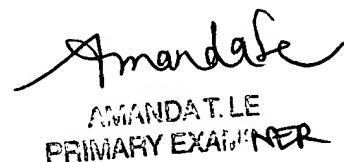 Amanda Le
AMANDA T. LE
PRIMARY EXAMINER